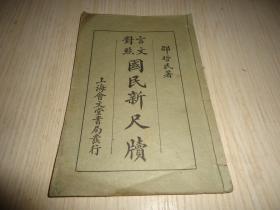 邵哲民著
言文對照
國民新尺牘
上海會文堂書局發行